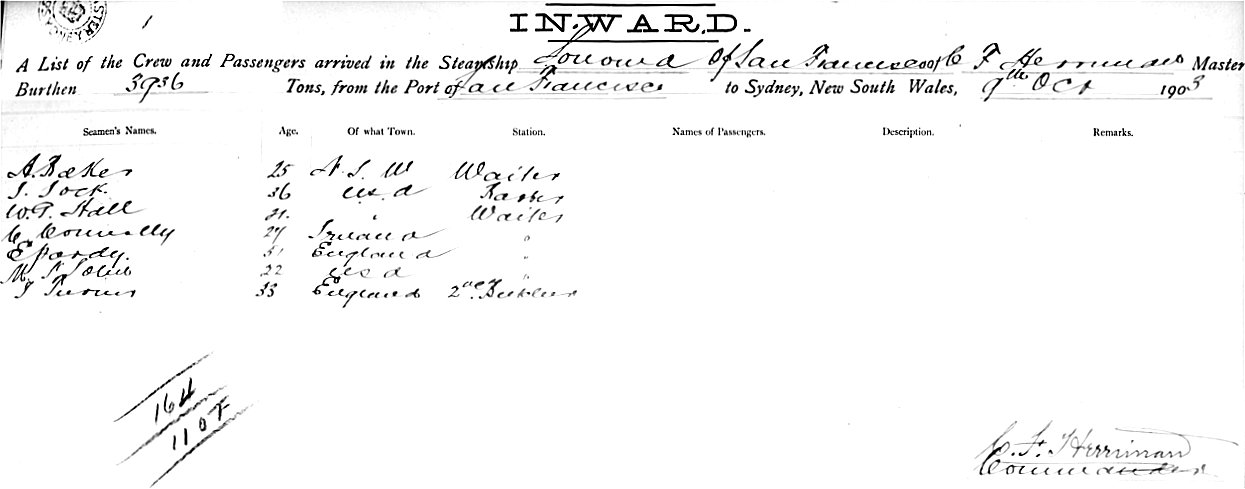 1
INWARD.
A List of the Crew and Passengers arrived in the Steamship Sonoma Of San Francisco of C F Herriman Master
Burthen 3936 Tons, from the Port of San Francisco to Sydney, New South Wales, 9th Oct 1903
Seamen's Names. Age. Of what Town. Station. Names of Passengers. Description. Remarks.
A. Baker 25 N. S. W Waiter
36 U.S.A Barber
Hall 21 " Waiter
C. Connelly 27 Ireland "
E Pardy. 51 England "
22 USA "
33 England 2nd
164
110
C. F. Herriman
Commander.